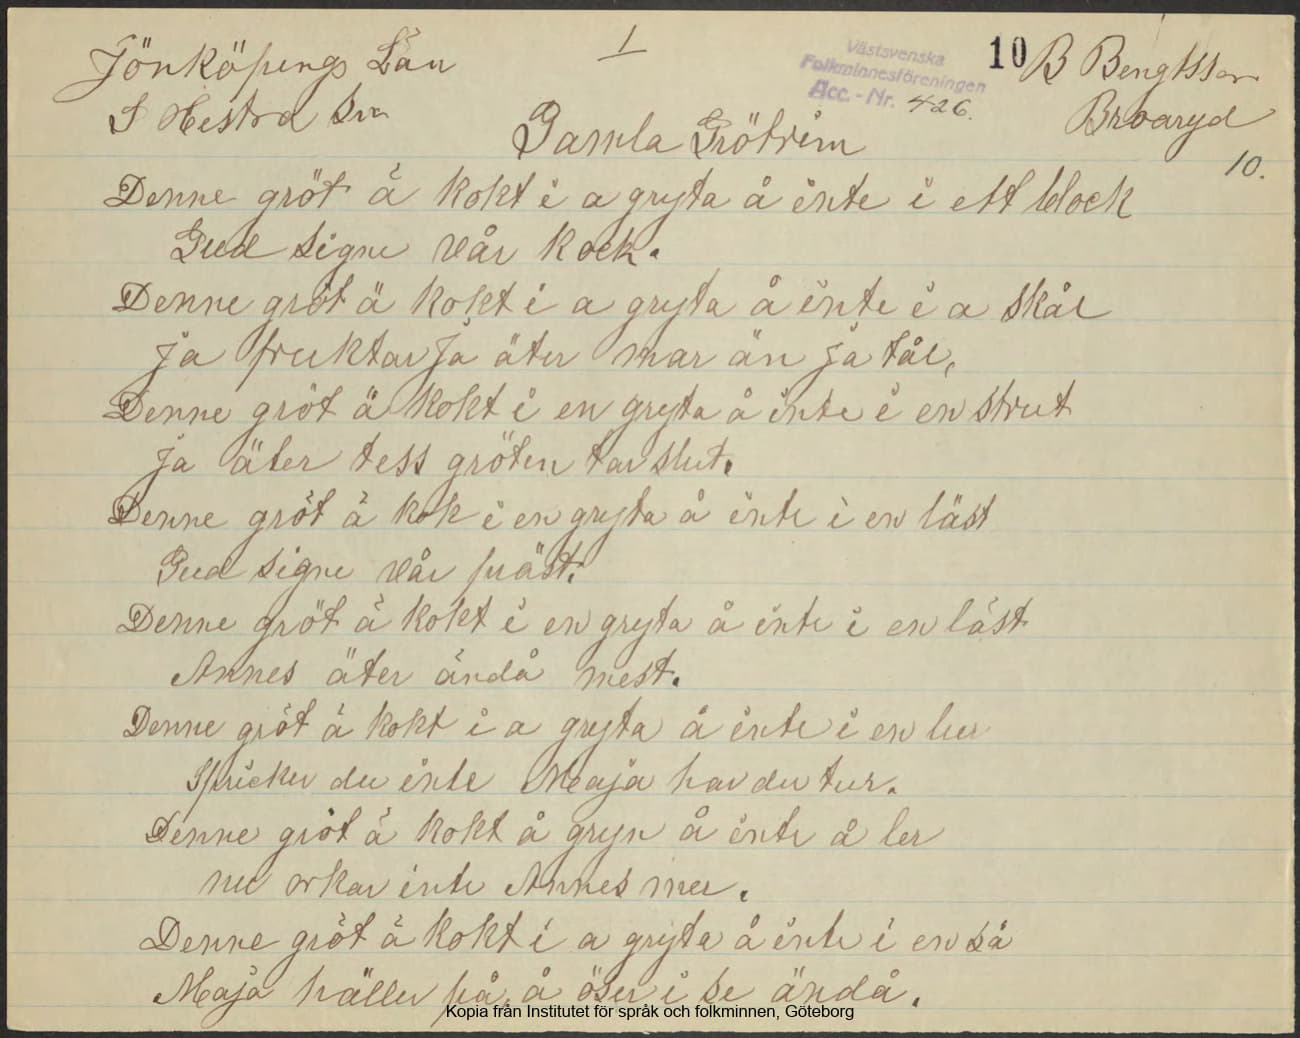 Jönköpings Län
1
Västsvenska
Folkminnesföreningen
Acc. - Nr. 426.
10 B Bengtsson
S Hestra Sn
Broaryd
10.
Gamla Grötrim
Denne gröt ä kokt i a gryta å inte i ett block
Gud signe vår kock.
Denne gröt ä kokt i a gryta å inte i a skål
ja fruktar ja äter mar än ja tål,
Denne gröt ä kokt i en gryta å inte i en strut
ja äter tess gröten tar slut.
Denne gröt ä kok i en gryta å inte i en läst
Gud signe vår präst.
Denne gröt ä kokt i en gryta å inte i en läst
Annes äter ändå mest.
Denne gröt ä kokt i a gryta å inte i en lur
Spricker du inte Maja har du tur.
Denne gröt ä kokt å gryn å inte å ler
nu orkar inte Annes mer.
Denne gröt ä kokt i a gryta å inte i en så
Maja håller på å öser i se ändå.
Kopia från Institutet för språk och folkminnen, Göteborg